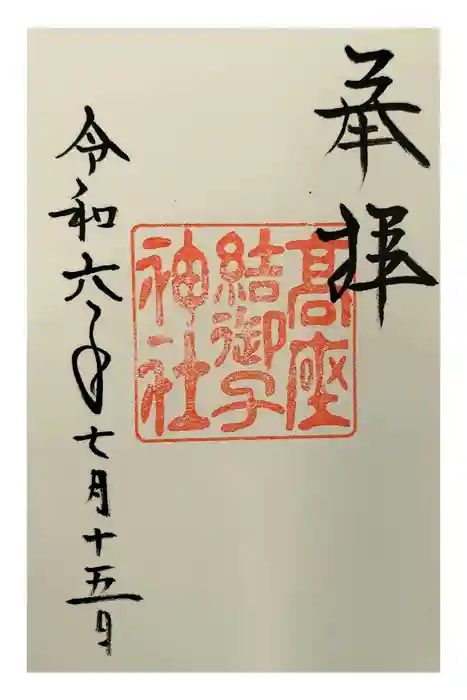 奉拝
高座
結御子
神社
令和六年七月十五日